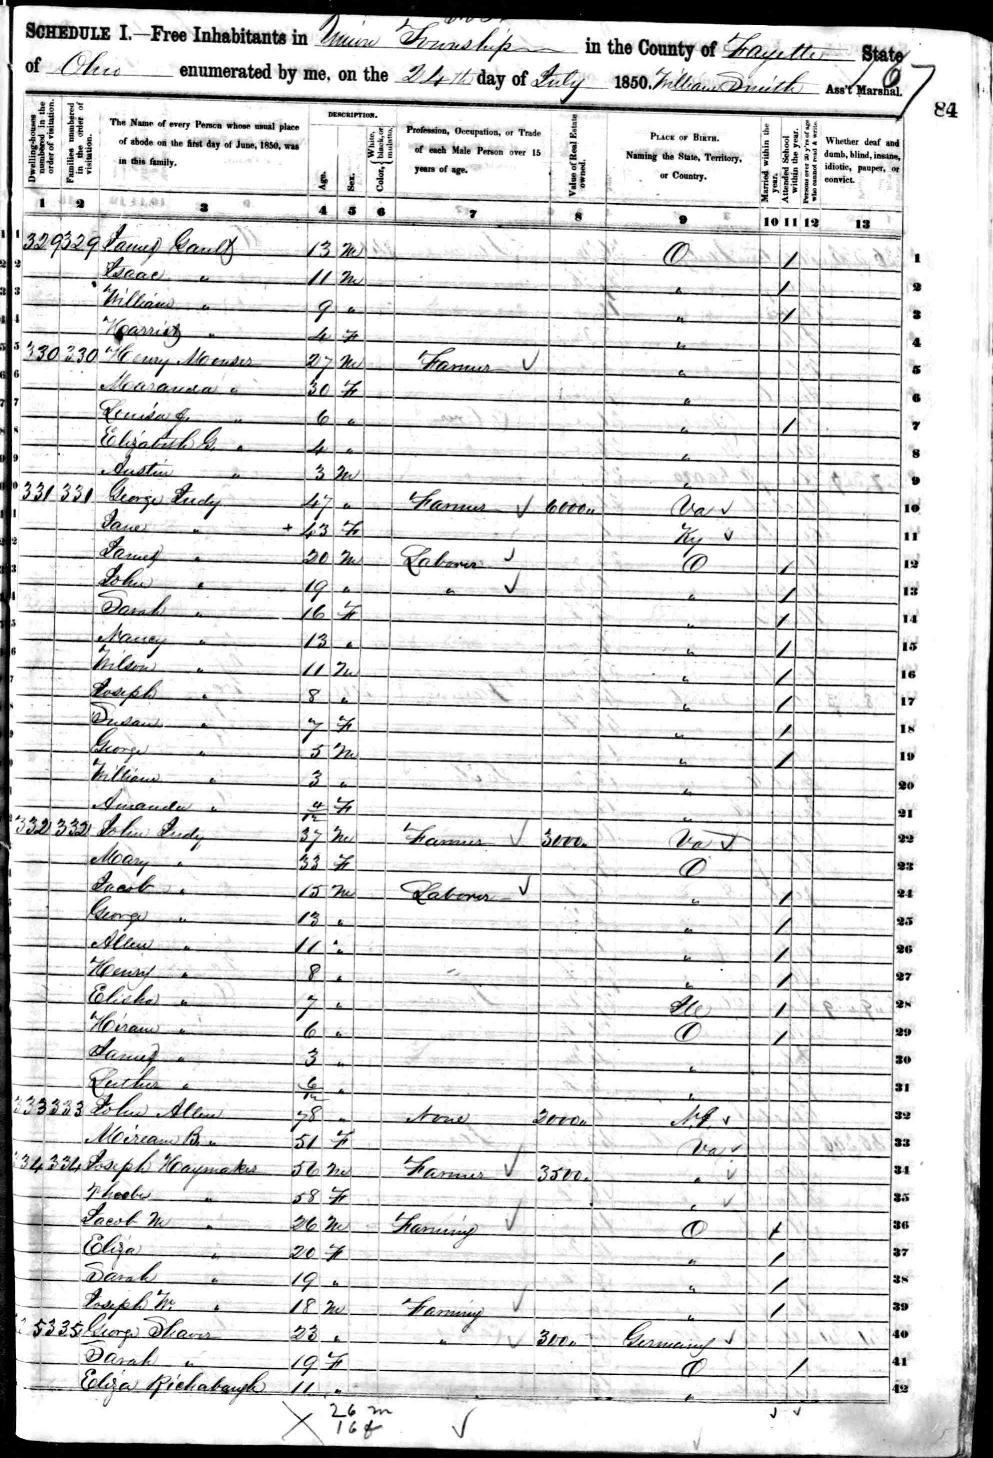 SCHEDULE I.—Free Inhabitants in Union Township in the County of Fayette State
of Ohio enumerated by me, on the 24th day of July 1850. William Smith Ass't Marshal.
167
84
Dwelling-houses numbered in the order of visitation.
Families numbered in the order of visitation.
The Name of every Person whose usual place of abode on the first day of June, 1850, was in this family.
DESCRIPTION.
Age.
Sex.
Color, { White, black, or mulatto.
Profession, Occupation, or Trade of each Male Person over 15 years of age.
Value of Real Estate owned.
PLACE OF BIRTH.
Naming the State, Territory, or Country.
Married within the year.
Attended School within the year.
Persons over 20 y'rs of age who cannot read & write.
Whether deaf and dumb, blind, insane, idiotic, pauper, or convict.
1 2 3 4 5 6 7 8 9 10 11 12 13
1 329 329 James Gault 13 M O / 1
2 Isaac " 11 M " / 2
3 William " 9 " " / 3
4 Harriet " 4 F " 4
5 330 330 Henry 27 M Farmer ✓ " 5
6 " 30 F " 6
7 Louisa J. " 6 " " / 7
8 Elizabeth G. " 4 " " 8
9 Austin " 3 M " 9
331 331 George Judy 47 " Farmer ✓ 6000 Va ✓ 10
Jane " + 43 F Ky ✓ 11
James " 20 M Laborer ✓ O / 12
John " 19 " " ✓ " / 13
Sarah " 16 F " / 14
Nancy " 13 " " / 15
Wilson " 11 M " / 16
Joseph " 8 " " / 17
Susan " 7 F " / 18
George " 5 M " / 19
William " 3 " " 20
Amanda " 4/12 F " 21
332 332 John Judy 37 M Farmer ✓ 3000 Va ✓ 22
Mary " 33 F O 23
Jacob " 15 M Laborer ✓ " / 24
George " 13 " " / 25
Allen " 11 " " / 26
Henry " 8 " " / 27
Elisha " 7 " / 28
Hiram " 6 " O / 29
James " 3 " " 30
Luther " 6/12 " " 31
333 333 John Allen 78 " None 2000 ✓ 32
Miream B. " 51 F Va ✓ 33
334 334 Joseph Haymaker 56 M Farmer ✓ 3500 " ✓ 34
Phoebe " 58 F " ✓ 35
Jacob M " 26 M Farming ✓ O 36
Eliza " 20 F " / 37
Sarah " 19 " " / 38
Joseph W " 18 M Farming ✓ " / 39
335 George Shaver 23 " " ✓ 300 Germany ✓ 40
Sarah " 19 F O / 41
Eliza Richabaugh 11 " " 42
26 m
16 f